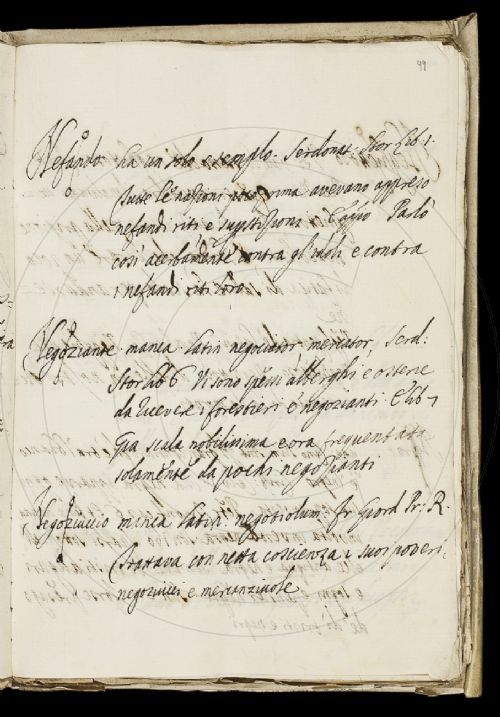 99
Nefando. ha un solo esemplo. Serdonat. Stor Lib. 1.
tutte le nazioni prima avevano appreso
nefandi riti e Cosso Parlò
così acerbamente contra gl'idoli e contra
i nefandi riti loro.
Negoziante. manca. Latin. negociator, mercator, Serd:
Stor lib 6 Vi sono spessi alberghi e osterie
da ricevere i forestieri e negozianti E lib 7
Gia scala nobilissima e ora frequentata
solamente da pochi negozianti
Negoziuccio manca Latin: negotiolum. Fr Giord Pr: R.
Trattava con netta coscienza i suoi poveri
negoziucci e mercanziuole